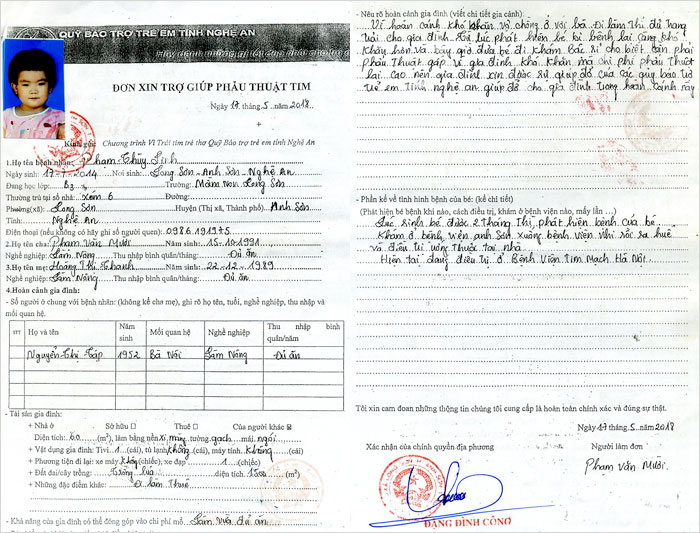 QUỸ BẢO TRỢ TRẺ EM TỈNH NGHỆ AN
ĐƠN XIN TRỢ GIÚP PHẪU THUẬT TIM
Ngày 17 tháng 5 năm 2018
Kính gửi: Chương trình Vì Trái tim trẻ thơ Quỹ Bảo trợ trẻ em tỉnh Nghệ An
1.Họ tên bệnh nhân: Phạm Thùy Linh
Ngày sinh: 17-7-2014 Nơi sinh: Long Sơn - Anh Sơn - Nghệ An
Đang học lớp: B3 Trường: Mầm Non Long Sơn
Thường trú tại số nhà: Xóm 6 Đường:
Phường(xã): Long Sơn Huyện (Thị xã, Thành phố): Anh Sơn
Tỉnh: Nghệ An
Điện thoại (nếu không có hãy ghi số người quen): 0986191975
2.Họ tên cha: Phạm Văn Mười Năm sinh: 15-10-1991
Nghề nghiệp: Làm Nông Thu nhập bình quân/tháng: Đủ ăn
3.Họ tên mẹ: Hoàng Thị Thanh Năm sinh: 22-12-1989
Nghề nghiệp: Làm Nông Thu nhập bình quân/tháng: Đủ ăn
4.Hoàn cảnh gia đình:
- Số người ở chung với bệnh nhân: (không kể cha mẹ), ghi rõ họ tên, tuổi, nghề nghiệp, thu nhập và
mối quan hệ.
STT Họ và tên Năm sinh Mối quan hệ Nghề nghiệp Thu nhập bình quân/năm
Nguyễn Thị Tập 1952 Bà Nội Làm Nông Đủ ăn
- Tài sản gia đình:
+ Nhà ở Sở hữu ☐ Thuê ☐ Của người khác ☒
Diện tích: 60 (m²), làm bằng nền xi măng, tường gạch mái ngói
+ Vật dụng gia đình: Tivi 1 (cái), tủ lạnh không (cái), máy tính không (cái)
+ Phương tiện đi lại: xe máy không (chiếc), xe đạp 1 (chiếc)
+ Đất đai/cây trồng: Trồng lúa diện tích 1500 (m²)
+ Những đặc điểm khác: Đi làm thuê
- Khả năng của gia đình có thể đóng góp vào chi phí mổ: Làm vừa đủ ăn
- Nêu rõ hoàn cảnh gia đình (viết chi tiết gia cảnh).
Vì hoàn cảnh khó khăn vợ chồng ở với bà Đi làm Thì đủ trang
trải cho gia đình. Từ lúc phát hiện bé bị bệnh lại càng khó
khăn hơn và bây giờ đưa bé đi khám Bác sĩ cho biết cần phải
phẫu Thuật gấp vì gia đình khó khăn mà chi phí phẫu Thuật
lại cao nên gia đình xin được sự giúp đỡ của các quỹ bảo trợ
trẻ em Tỉnh nghệ an giúp đỡ cho gia đình trong hoàn cảnh này
- Phần kể về tình hình bệnh của bé: (kể chi tiết)
(Phát hiện bé bệnh khi nào, cách điều trị, khám ở bệnh viện nào, mấy lần ...)
Lúc sinh bé được 2 tháng Thì phát hiện bệnh của bé
Khám ở bệnh viện anh Sơn xuống bệnh viện Nhi rồi ra huế
và điều trị uống thuốc tại nhà
Hiện tại đang điều trị ở Bệnh Viện Tim Mạch Hà Nội
Tôi xin cam đoan những thông tin chúng tôi cung cấp là hoàn toàn chính xác và đúng sự thật.
Ngày 17 tháng 5 năm 2018
Xác nhận của chính quyền địa phương Người làm đơn
Phạm Văn Mười
ĐẶNG ĐÌNH CÔNG